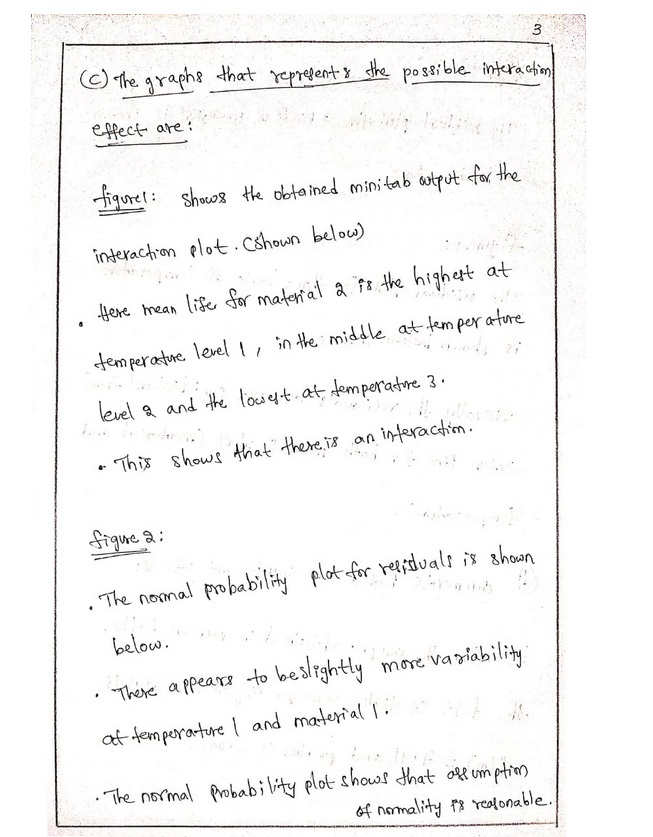 3
(c) The graphs that represents the possible interaction
effect are:
figure1: shows the obtained minitab output for the
interaction plot. (shown below)
• Here mean life for material 2 is the highest at
temperature level 1, in the middle at temperature
level 2 and the lowest at temperature 3.
• This shows that there is an interaction.
figure 2:
• The normal probability plot for residuals is shown
below.
• There appears to be slightly more variability
at temperature 1 and material 1.
• The normal probability plot shows that assumption
of normality is reasonable.